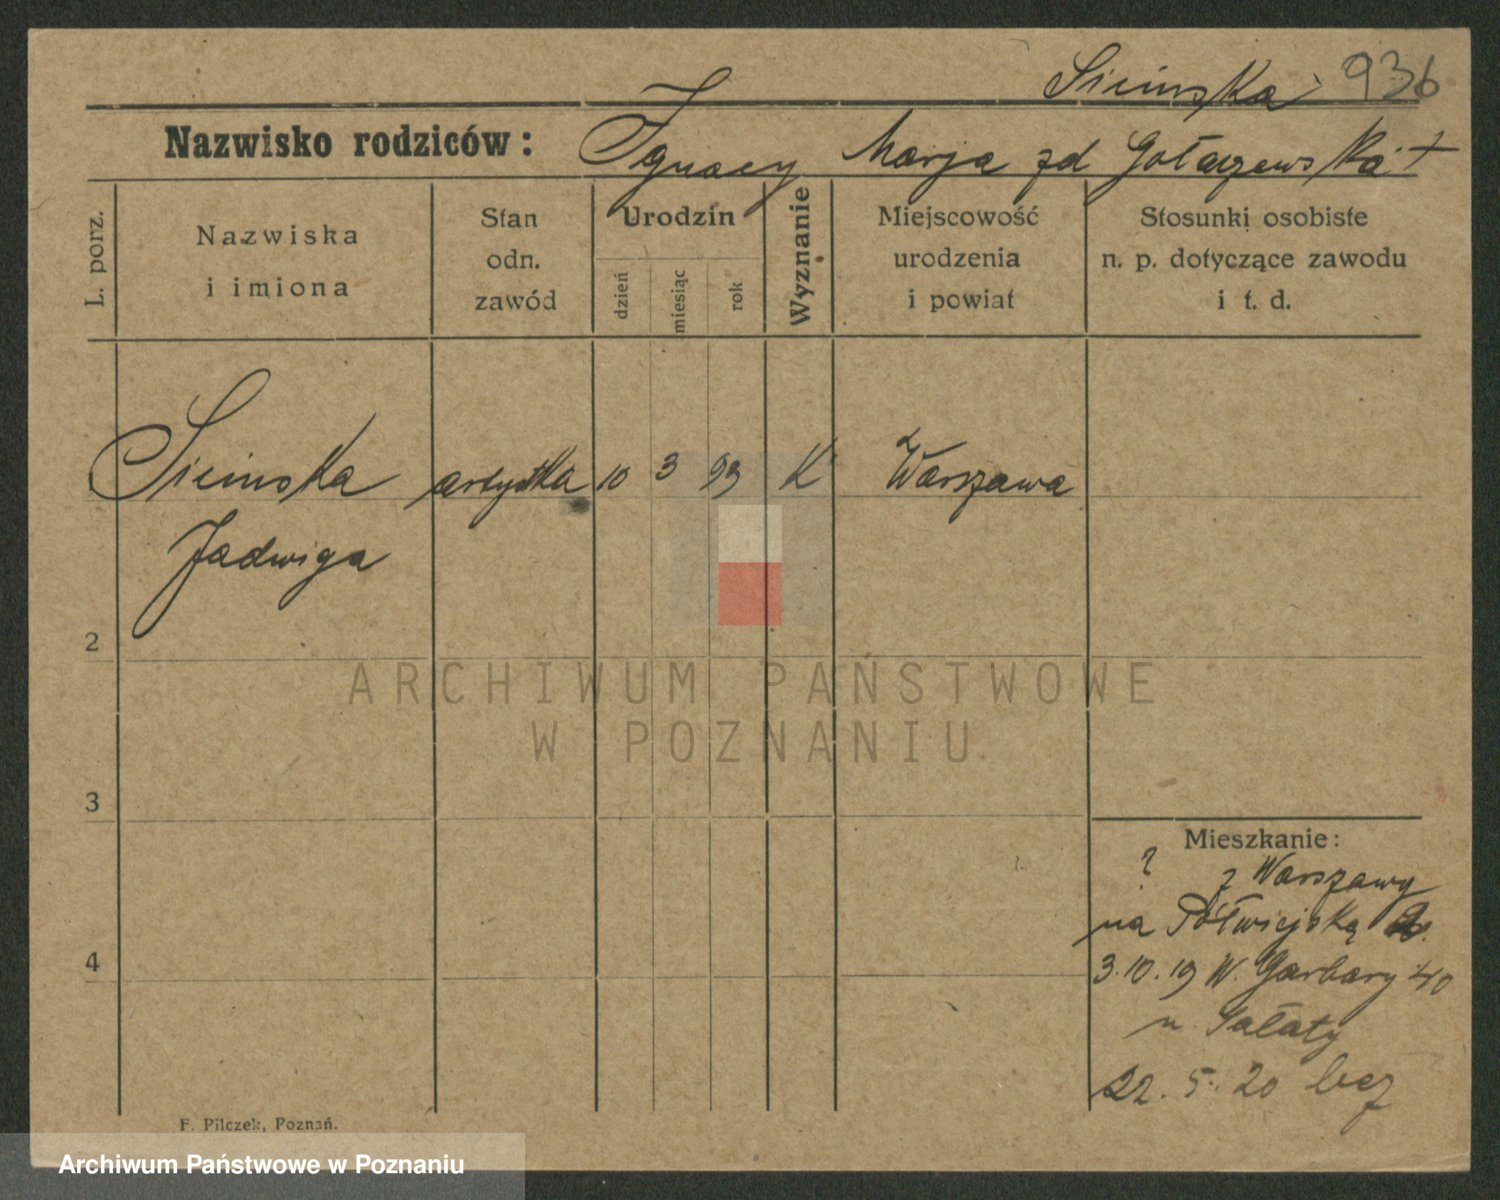 Sicińska 936
Nazwisko rodziców: Ignacy Marja zd Gołaszewska +
L. porz.
Nazwiska
i imiona
Stan
odn.
zawód
Urodzin
dzień
miesiąc
rok
Wyznanie
Miejscowość
urodzenia
i powiat
Stosunki osobiste
n. p. dotyczące zawodu
i t. d.
Sicińska artystka 10 3 93 K Warszawa
Jadwiga
2
3
4
ARCHIWUM PAŃSTWOWE
W POZNANIU
Mieszkanie:
? z Warszawy
na Półwiejską
3.10.19 W. Garbary 40
u. Sałaty
22. 5. 20 bez
F. Pilczek, Poznań.
Archiwum Państwowe w Poznaniu